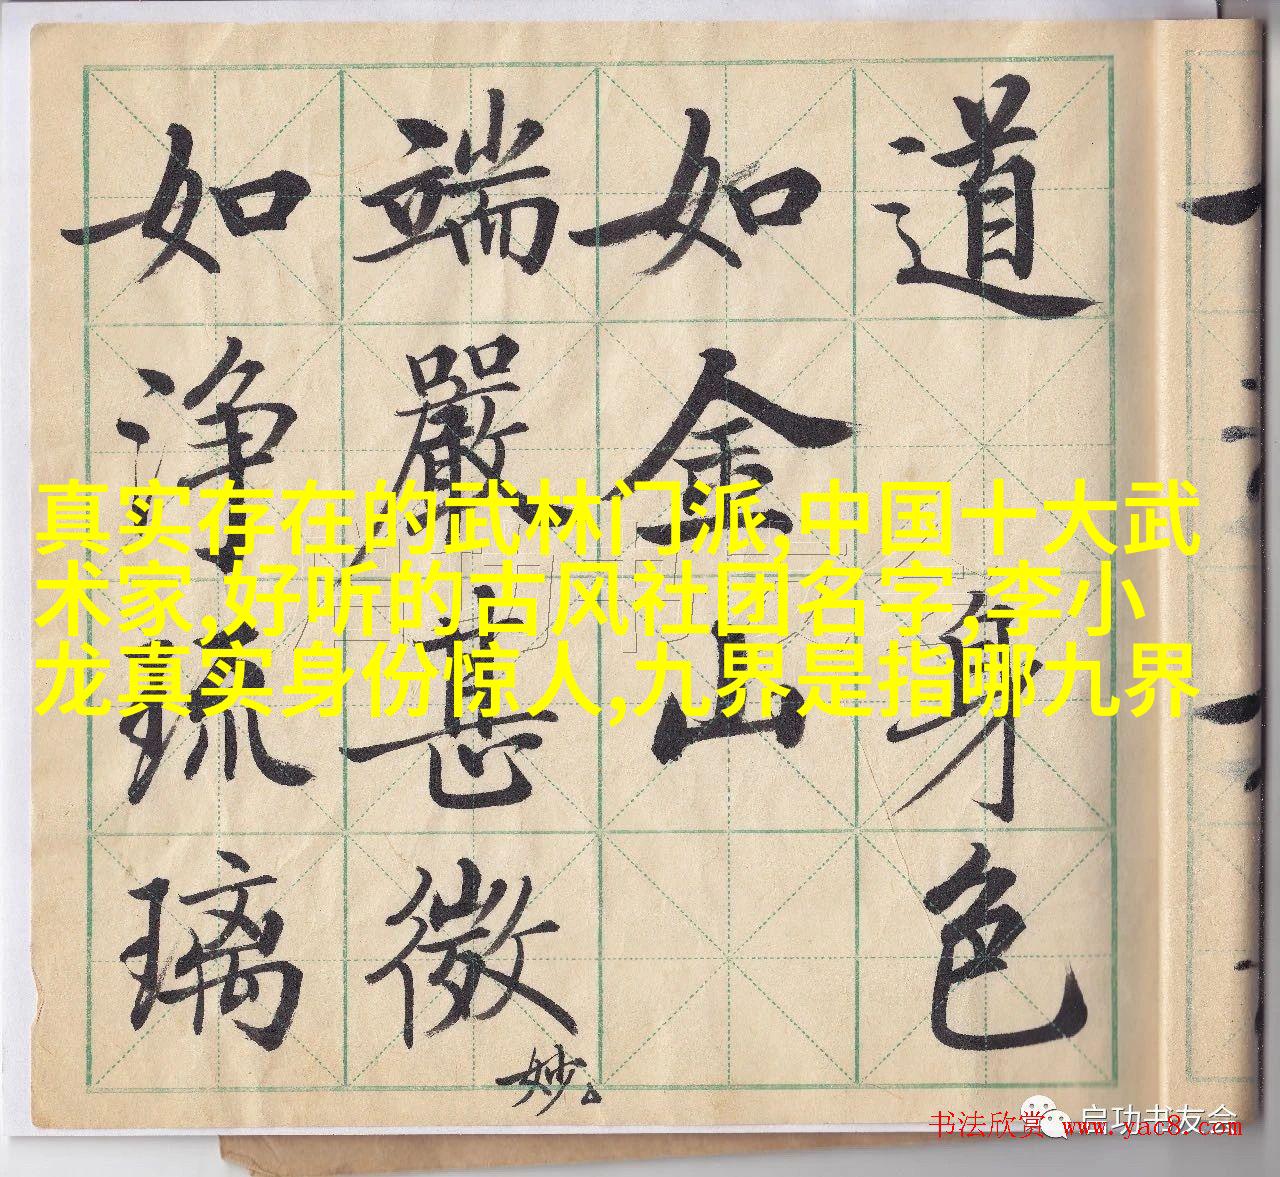 道身色
如金山
端嚴甚微
妙
如淨琉璃
真实存在的武林门派,中国十大武
术家,好听的古风社团名字,李小
龙真实身份惊人,九界是指哪九界
启功书友会
书法欣赏 www.yac8.com